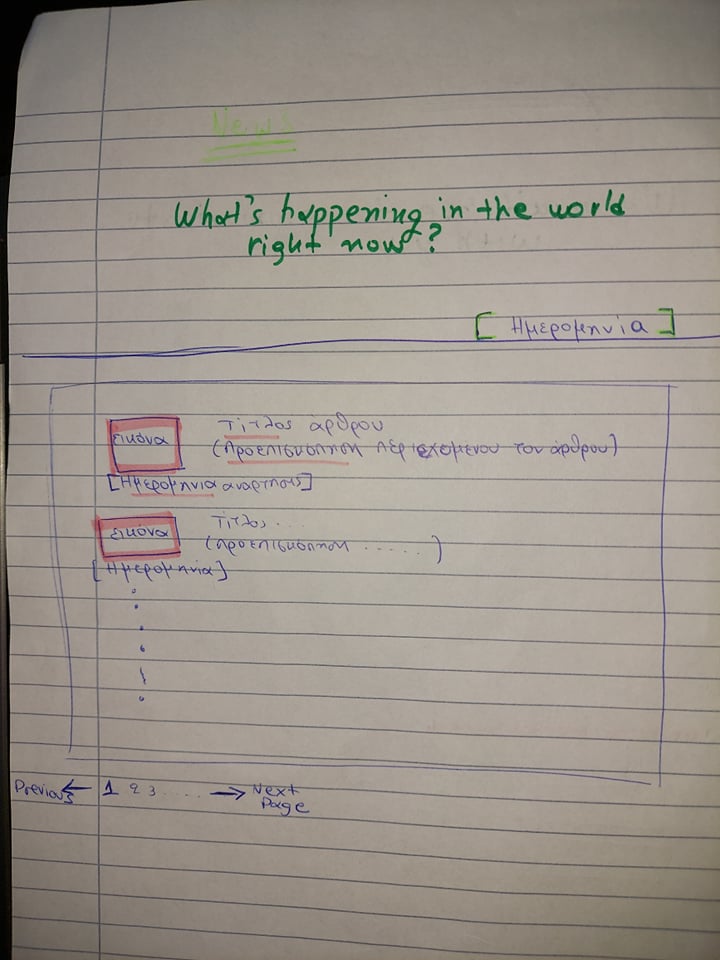 News
What's happening in the world
right now?
[Ημερομηνία]
εικόνα
Τίτλος άρθρου
(Προεπισκοπηση περιεχομενου του άρθρου)
[Ημερομηνια αναρτησης]
εικόνα
Τιτλος...
(Προεπισκοπηση ......)
[Ημερομηνία]
Previous ← 1 2 3 ..... → Next
Page